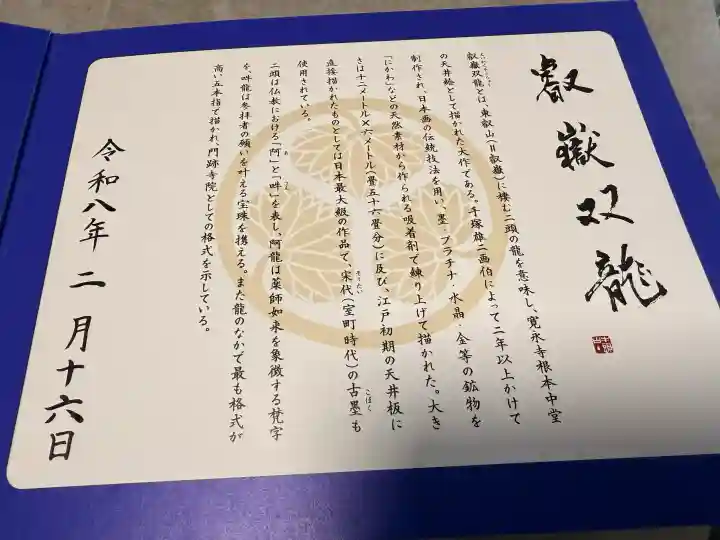 叡嶽双龍
叡嶽双龍とは、東叡山(=叡嶽)に棲む二頭の龍を意味し、寛永寺根本中堂
の天井絵として描かれた大作である。手塚雄二画伯によって二年以上かけて
制作され、日本画の伝統技法を用い、墨・プラチナ・水晶・金等の鉱物を
「にかわ」などの天然素材から作られる吸着剤で練り上げて描かれた。大き
さは十二メートル×六メートル(畳五十六畳分)に及び、江戸初期の天井板に
直接描かれたものとしては日本最大級の作品で、宋代(室町時代)の古墨も
使用されている。
二頭は仏教における「阿」と「吽」を表し、阿龍は薬師如来を象徴する梵字
を、吽龍は参拝者の願いを叶える宝珠を携える。また龍のなかで最も格式が
高い五本指で描かれ、門跡寺院としての格式を示している。
令和八年 二 月十六日